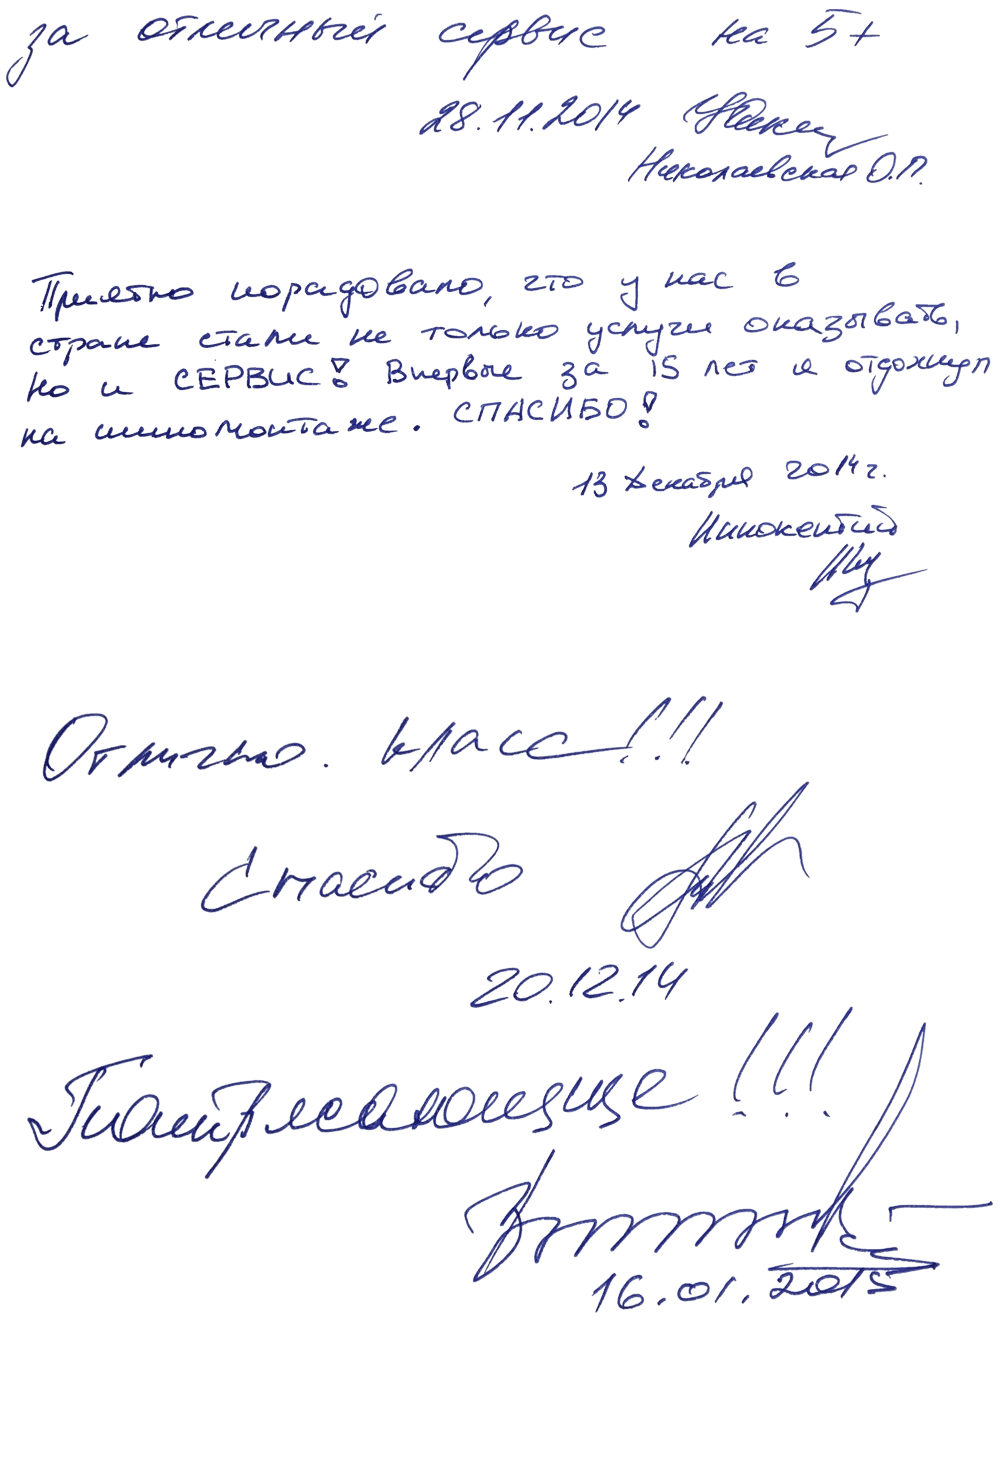 за отличный сервис на 5+
28.11.2014
Николаевская О.П.
Приятно порадовало, что у нас в
стране стали не только услуги оказывать,
но и СЕРВИС! Впервые за 15 лет я отдохнул
на шиномонтаже. СПАСИБО!
13 декабря 2014 г.
Иннокентий
Отлично. класс!!!
Спасибо
20.12.14
Потрясающие!!!
16.01.2015